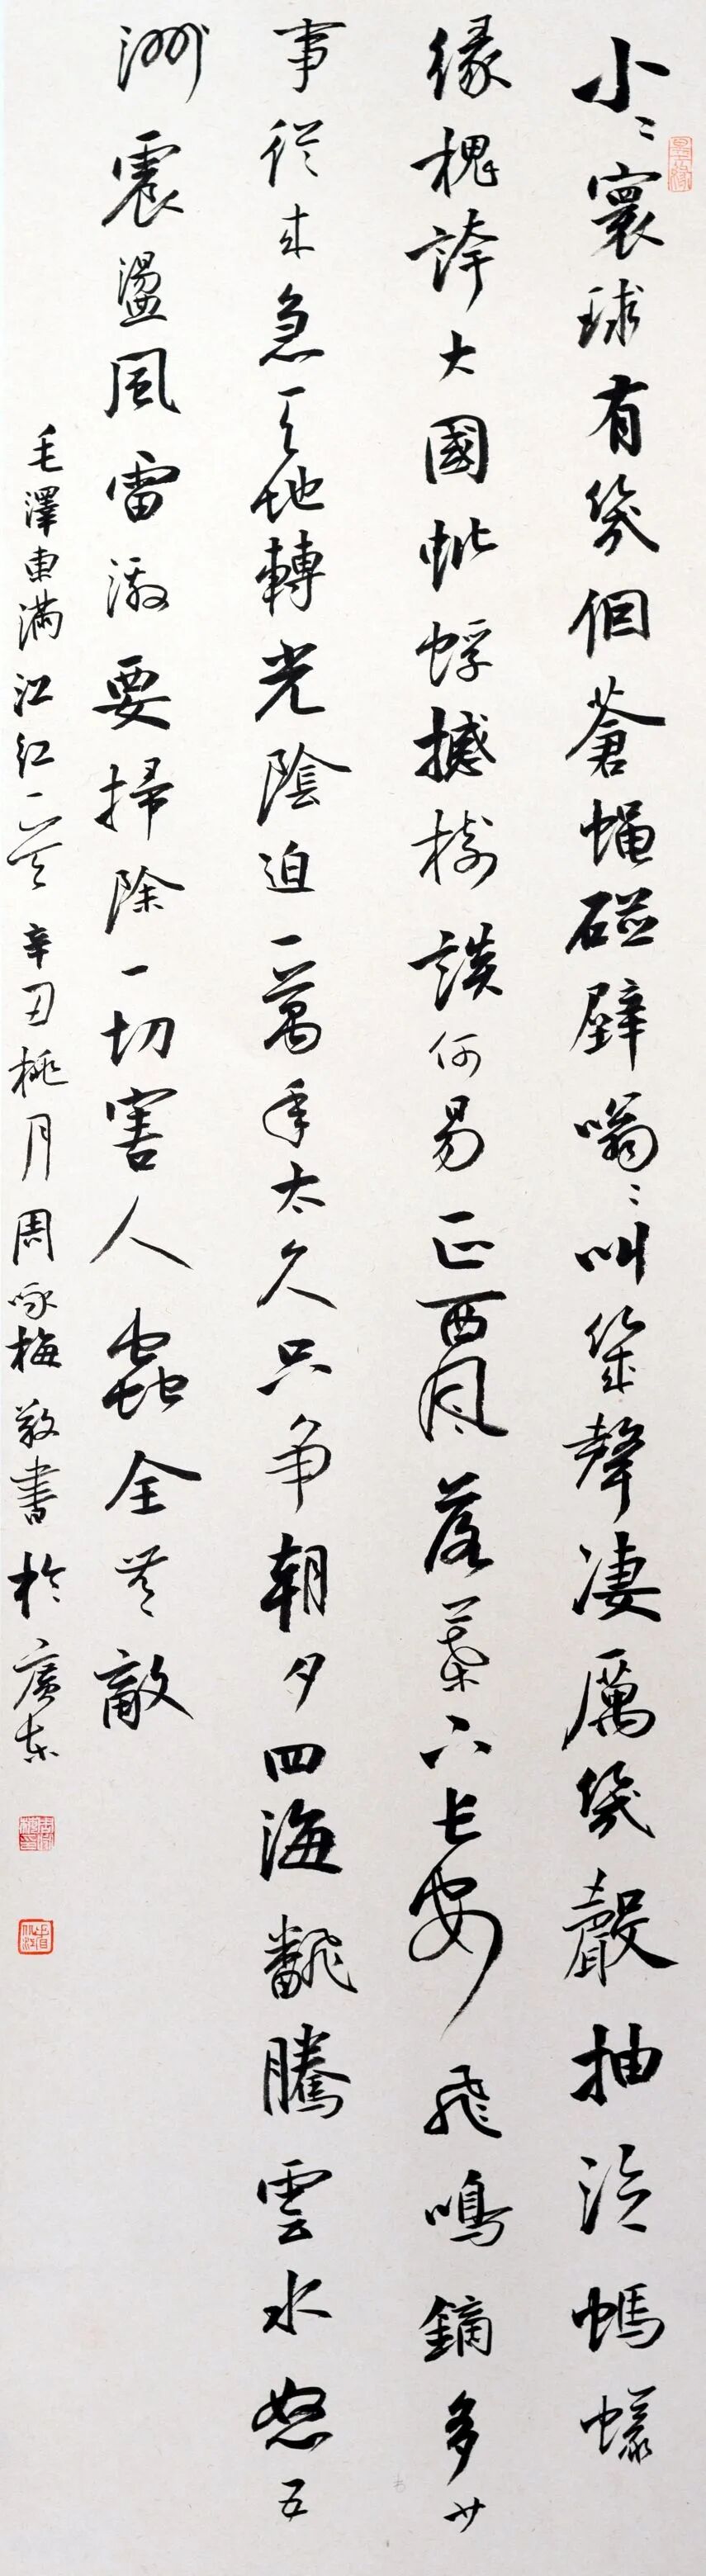 小〻寰球有幾個蒼蝇碰壁嗡〻叫幾聲凄厲幾聲抽泣螞蟻
緣槐誇大國蚍蜉撼樹談何易正西風落葉下長安飛鳴鏑多少
事從来急天地轉光陰迫一萬年太久只争朝夕四海翻騰雲水怒五
洲震盪風雷激要掃除一切害人蟲全無敵
毛澤東滿江紅一首 辛丑桃月周咏梅敬書於廣東